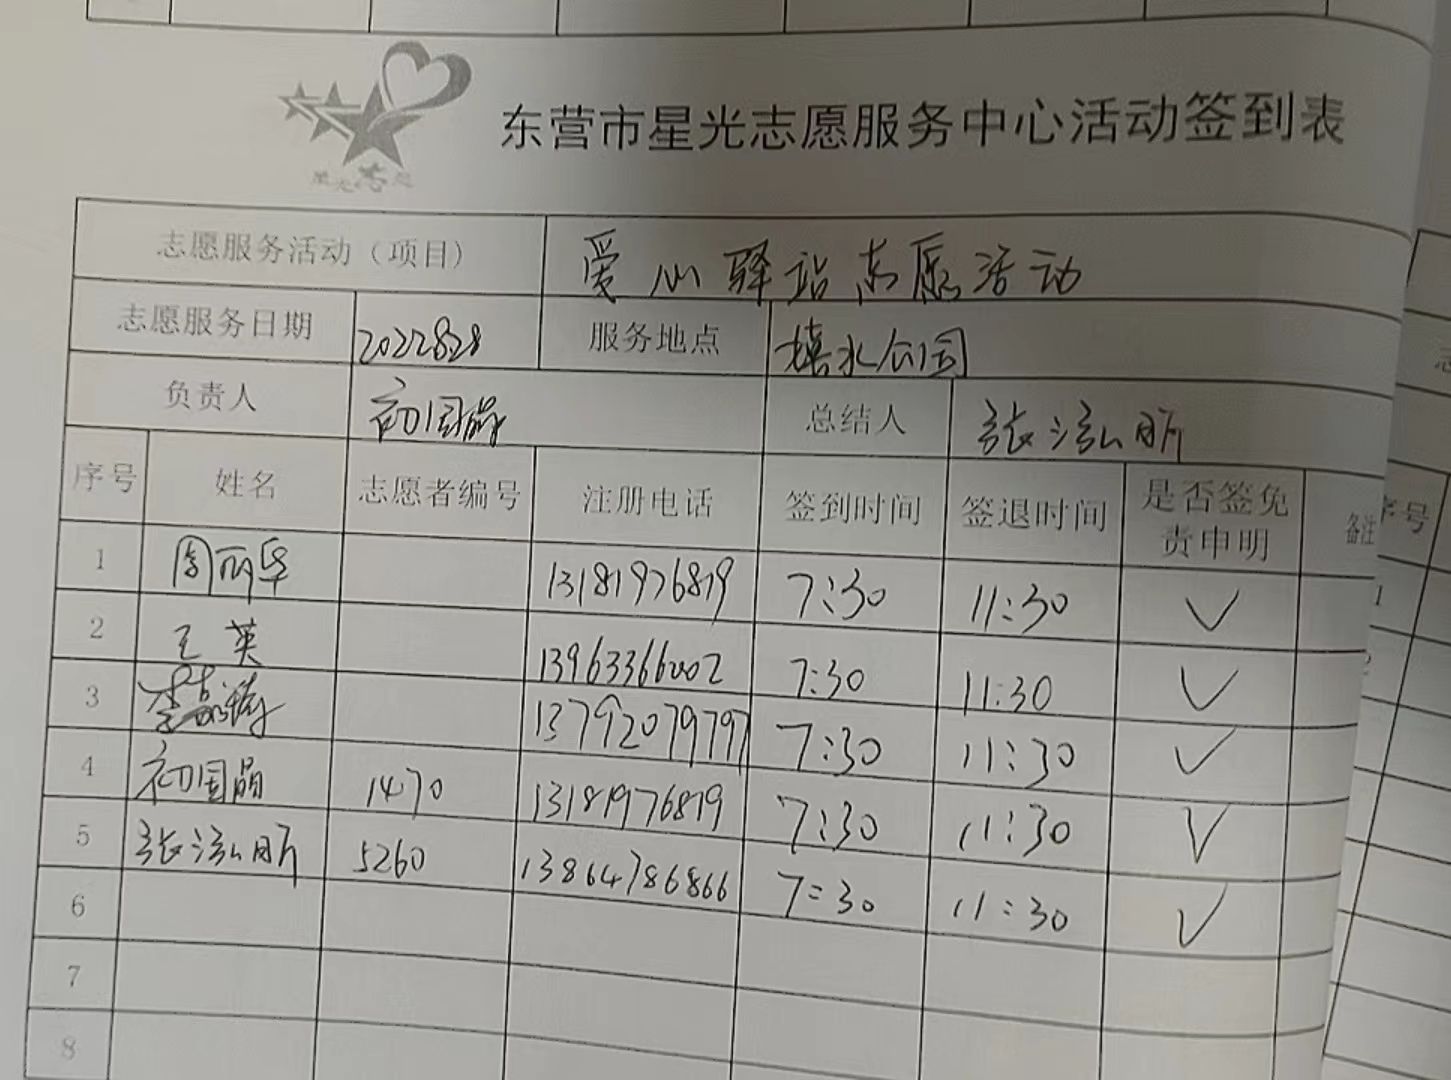 星光志愿
东营市星光志愿服务中心活动签到表
志愿服务活动（项目） 爱心驿站志愿活动
志愿服务日期 2022828 服务地点 公园
负责人 初国 总结人 张泓昕
序号 姓名 志愿者编号 注册电话 签到时间 签退时间 是否签免责申明 备注
1 周丽华 13181976819 7:30 11:30 ✓
2 王英 13963366002 7:30 11:30 ✓
3 李 13792079797 7:30 11:30 ✓
4 初国晶 1470 13181976819 7:30 11:30 ✓
5 张泓昕 5260 13864786866 7:30 11:30 ✓
6
7
8
序号
1
2